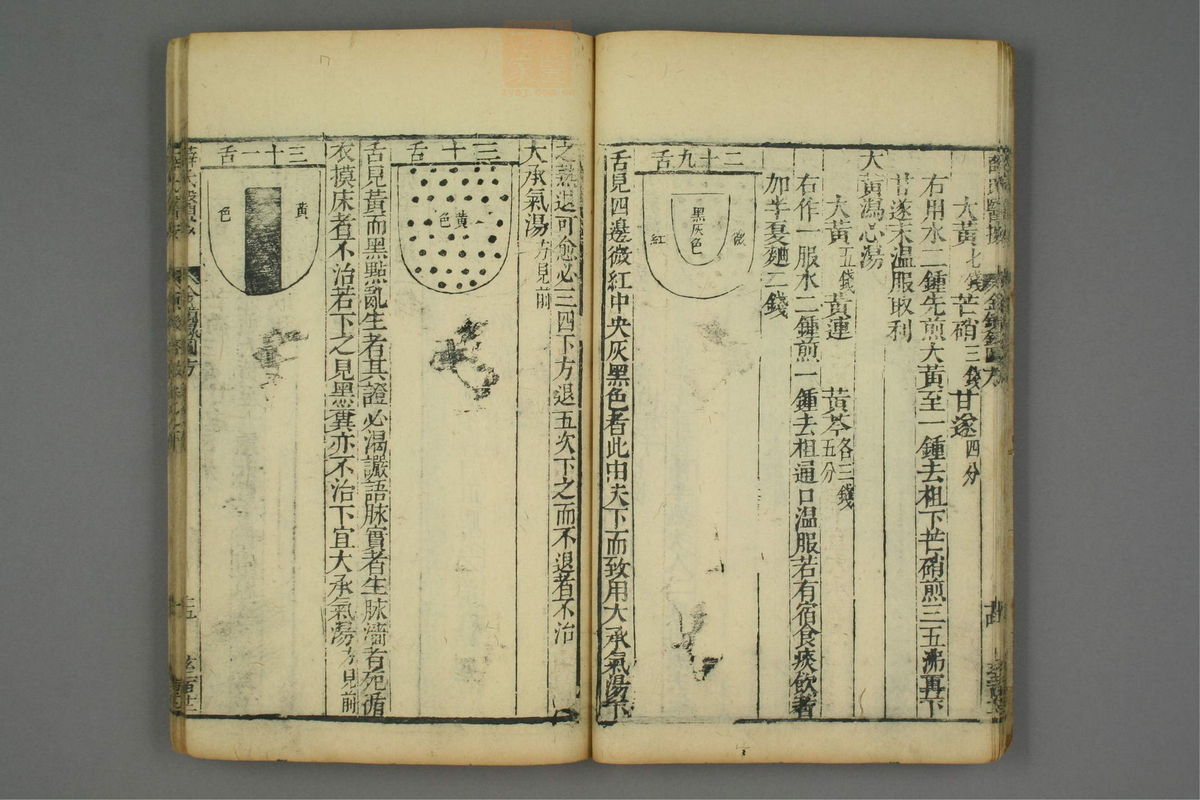 大黃七錢芒硝三錢甘遂四分
右用水二鍾先煎大黃至一鍾去柤下芒硝煎三五沸再下
甘遂末溫服取利
大黃瀉心湯
大黃五錢黃連　黃芩各三錢五分
右作一服水二鍾煎一鍾去柤通口溫服若有宿食痰飲者
加半夏麯二錢
二十九舌
微
黑灰色
紅
舌見四邊微紅中央灰黑色者此由失下而致用大承氣湯下
之熱退可愈必三四下方退五次下之而不退者不治
大承氣湯方見前
三十舌
黃色
舌見黃而黑點亂生者其證必渴讝語脉實者生脉濇者死循
衣摸床者不治若下之見黑糞亦不治下宜大承氣湯方見前
三十一舌
黃
色